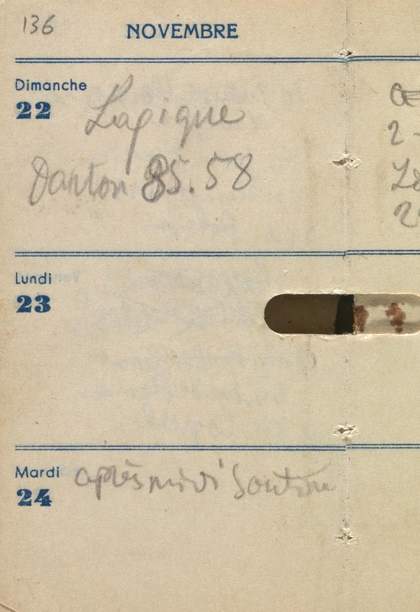 136
NOVEMBRE
Dimanche
22
Lapique
Danton 85.58
Lundi
23
Mardi
24
après midi Soutine